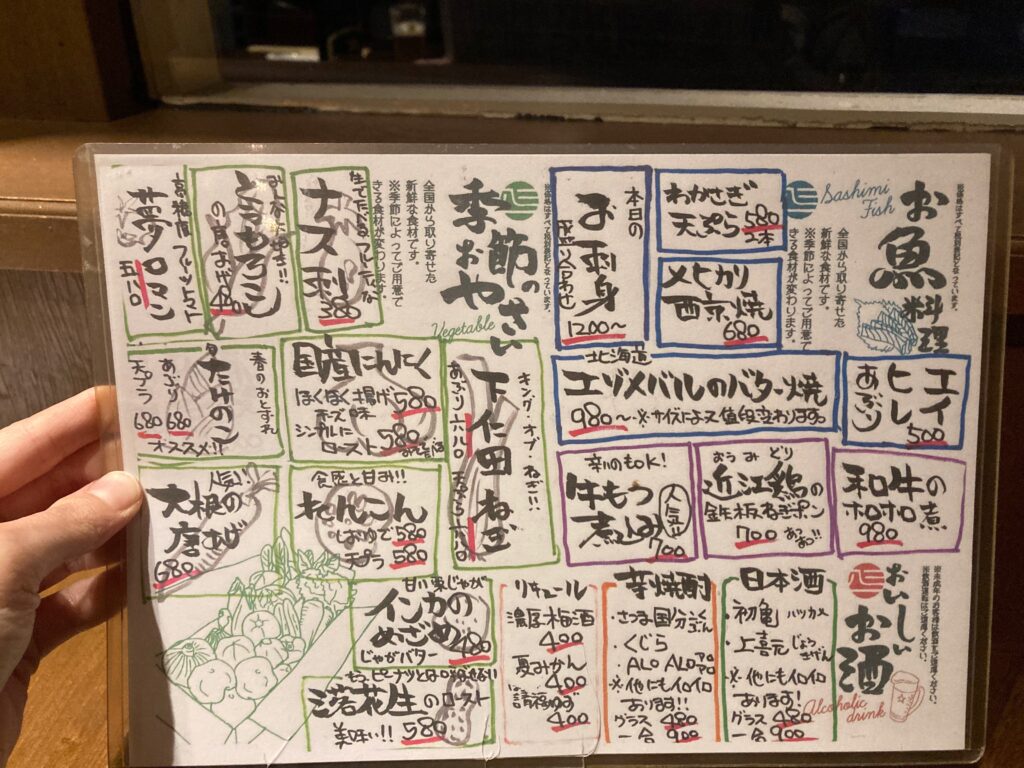 お魚料理
Sashimi
Fish
全国から取り寄せた
新鮮な食材です。
※季節によってご用意で
きる食材が変わります。
わかさぎ
天ぷら 580
2本
メヒカリ
西京焼
680
本日の
お刺身
盛り合わせ
1200〜
エイ
ヒレ
あぶり
500
北海道
エゾメバルのバター焼
980〜 ※サイズによって値段変わります。
和牛の
ホロホロ煮
980
おうみどり
近江鶏の
鉄板ねぎポン
700
辛いのもOK!
牛もつ
煮込み
人気!!
700
季節のおやさい
Vegetable
全国から取り寄せた
新鮮な食材です。
※季節によってご用意で
きる食材が変わります。
ナス刺
380
とうもろこし
の唐あげ
480
高糖度フルーツトマト
夢ロマン
五八〇
キング・オブ・ねぎ!!
下仁田ねぎ
あぶり 六八〇
天ぷら
国産にんにく
ほくほく土揚げ 580
シンプルに
ロースト 580
春のおとずれ
たけのこ
あぶり 680
天プラ 680
オススメ!!
食感と甘み!!
れんこん
580
天プラ 580
人気!!
大根の
唐あげ
680
インカの
めざめ
じゃがバター 480
落花生のロースト
美味い!! 580
おいしいお酒
Alcoholic
drink
日本酒
・初亀 ハツカメ
・上喜元 じょうきげん
※他にもイロイロ
あります!
グラス 480
一合 900
芋焼酎
・さつま国分
・くじら
・ALO ALO アロアロ
※他にもイロイロ
あります!!
グラス 480
一合 900
リキュール
濃厚梅酒
400
夏みかん
400
ゆず
400